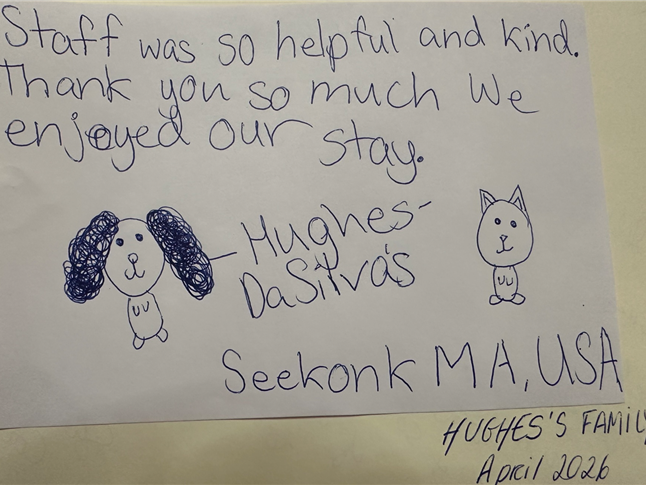 Staff was so helpful and kind.
Thank you so much We
enjoyed our stay.
- Hughes-
DaSilva's
Seekonk MA, USA
HUGHES'S FAMILY
April 2026